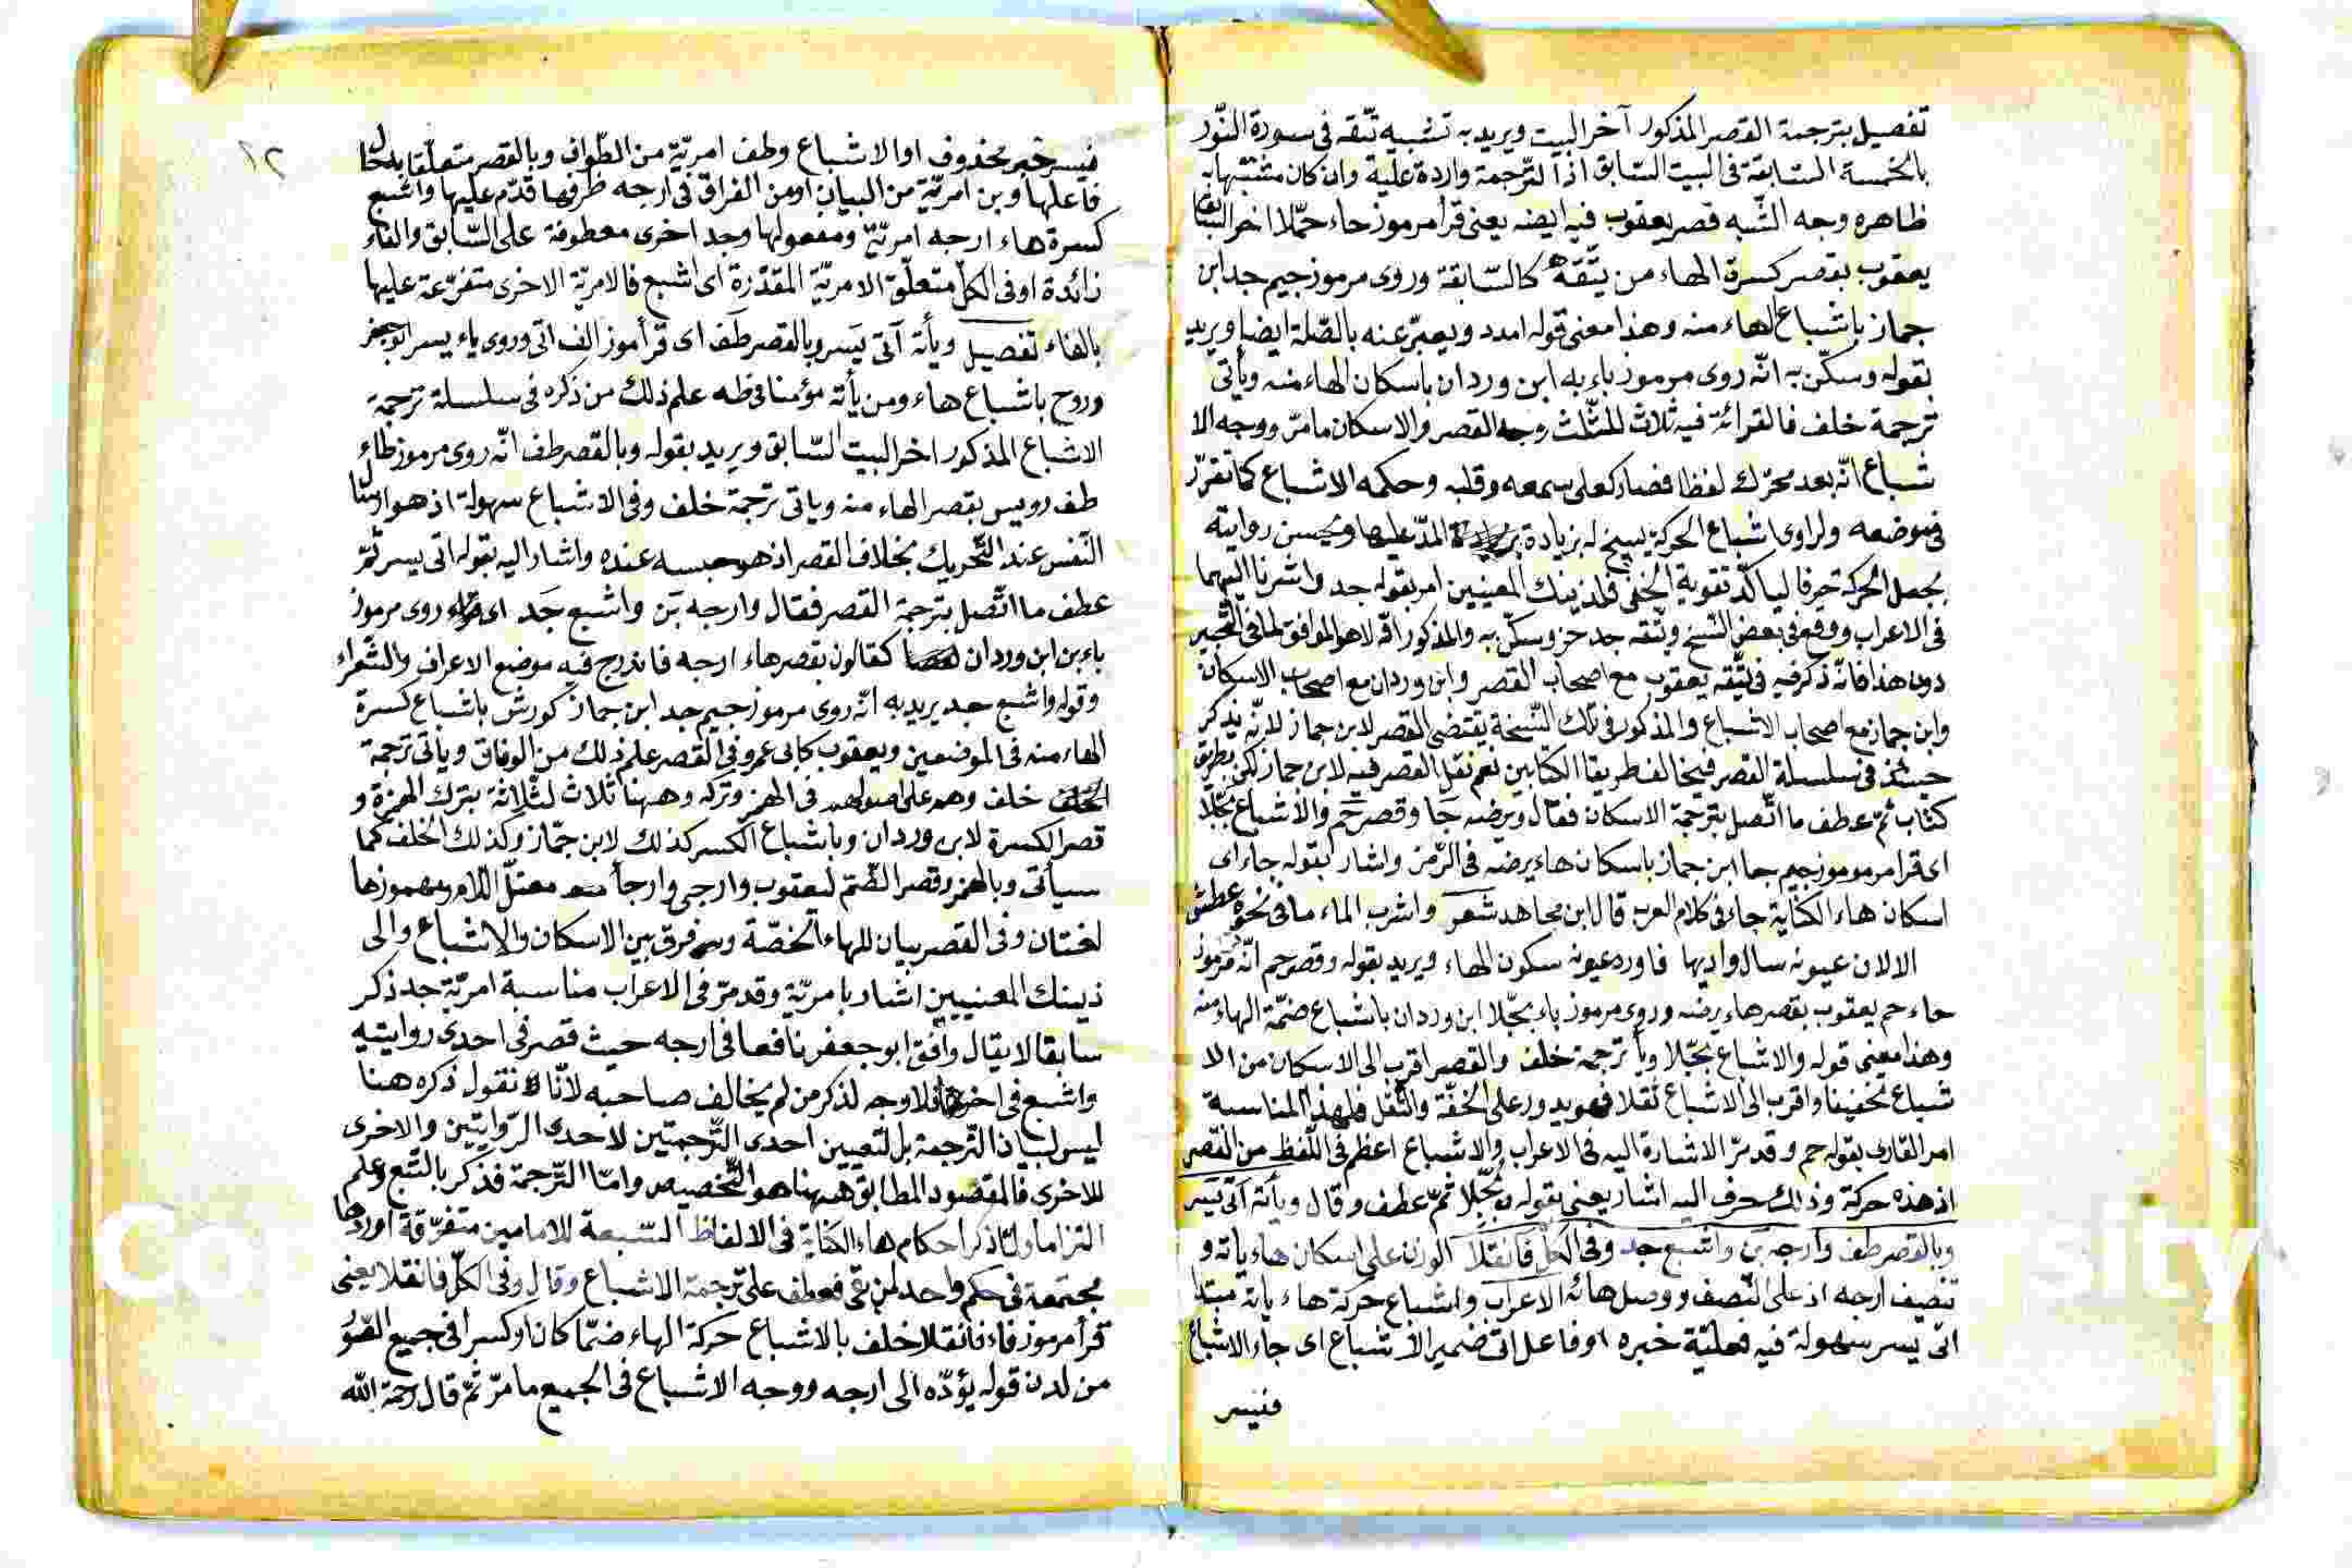 تفصيل بترجمة القصر المذكور آخر البيت ويريد به تشبيه تتقه فى سورة النّور
بالخمسة السّابقة فى البيت السّابق اذا لترجمة واردة عليه وان كان متنبّها به
ظاهره وجه الشّبه قصر يعقوب فيه ايضه يعنى قرأ مرموز حاء حمّلا اخر السّابق
يعقوب بقصر كسرة الهاء من يتّقه كالسّابقة وروى مرموز جيم جد ابن
جماز باشباع الهاء منه وهذا معنى قوله امدد ويعبّر عنه بالصّلة ايضا ويريد
بقوله وسكّن به انّه روى مرموز باء به ابن وردان باسكان الهاء منه ويأتى
ترجمة خلف فالقرائة فيه ثلاث للمثّلث وجه القصر والاسكان ما مرّ ووجه الا
شباع انّه بعد محرّك لفظا فصار كعلى سمعه وقلبه وحكمه الاشباع كما تقرّر
فى موضعه ولراوى اشباع الحركة يسيغ له بزيادة المدّ عليها ويحسن روايته
بجعل الحركة حرفا ليأكّد تقوية الخفى فلذينك المعنيين امر بقوله جد واشرنا اليهما
فى الاعراب ووقع فى بعض النّسخ ويتّقه جد حز وسكّن به والمذكور اوّلا هو الموافق لما فى التّحبير
دون هذا فانّه ذكر فيه فى يتّقه يعقوب مع اصحاب القصر وابن وردان مع اصحاب الاسكان
وابن جماز مع اصحاب الاشباع والمذكور فى تلك النّسخة يقتضى القصر لابن جماز لانّه يذكر
حينئذ فى سلسلة القصر فيخالف طريقا الكتابين نعم نقل القصر فيه لابن جماز لكن بطريق
كتاب ثمّ عطف ما اتّصل بترجمة الاسكان فقال ويرضه جا وقصر حم والاشباع بجّلا
اى قرأ مرموز جيم جا ابن جماز باسكان هاء يرضه فى الزّمر واشار بقوله جاء اى
اسكان هاء الكناية جاء فى كلام العرب قال ابن مجاهد شعر واشرب الماء ما فى نحوه عطش
الا لان عيونه سال واديها فاورد عيونه سكون الهاء ويريد بقوله وقصر حم انّه مرموز
حاء حم يعقوب بقصر هاء يرضه وروى مرموز باء بجّلا ابن وردان باشباع ضمّة الهاء منه
وهذا معنى قوله والاشباع بجّلا ويأ ترجمة خلف والقصر اقرب الى الاسكان من الا
شباع تخفيفا واقرب الى الاشباع ثقلا فهو يدور على الخفّة والثّقل فلهذا المناسبة
امر القارى بقوله حم وقد مرّ الاشارة اليه فى الاعراب والاشباع اعظم فى اللّفظ من القصر
اذ هذه حركة وذلك حرف اليه اشار يعنى بقوله بجّلا ثمّ عطف وقال ويأته اتى يسر
وبالقصر طف وارجه بن واشبع جد وفى الكلّ فانقلا الوزن على اسكان هاء ياته و
تنصيف ارجه اذ على النّصف ووصل هائه الاعراب واشباع حركة هاء ياته مبتدا
اتى يسر سهولة فيه فعليّة خبره او فاعل اتى ضمير الاشباع اى جاء الاشباع
فيسر
فيسر خبر محذوف او الاشباع وطف امريّة من الطّواف وبالقصر متعلّقا بدل
فاعلها وبن امريّة من البيان او من الفراق فى ارجه ظرفها قدّم عليها واشبع
كسرة هاء ارجه امريّة ومفعولها وجد اخرى معطوفة على السّابق والفاء
زائدة او فى الكلّ متعلّق الامريّة المقدّرة اى اشبع فالامريّة الاخرى متفرّعة عليها
بالفاء تفصيل ويأته آتى يَسر وبالقصر طَف اى قرأ موز الف اتى وروى ياء يسر ابو جعفر
وروح باشباع هاء ومن يأته مؤمنا فى طه علم ذلك من ذكره فى سلسلة ترجمة
الاشباع المذكور اخر البيت السّابق ويريد بقوله وبالقصر طف انّه روى مرموز طاء
طف رويس بقصر الهاء منه وياتى ترجمة خلف وفى الاشباع سهولة اذ هو ارسال
النّفس عند التّحريك بخلاف القصر اذ هو حبسه عنده واشار اليه بقوله اتى يسر ثمّ
عطف ما اتّصل بترجمة القصر فقال وارجه بَن واشبع جَد اى روى مرموز
باء بن ابن وردان كقالون بقصر هاء ارجه فاندرج فيه موضع الاعراف والشّعراء
وقوله واشبع جد يريد به انّه روى مرموز جيم جد ابن جماز كورش باشباع كسرة
الهاء منه فى الموضعين ويعقوب كابى عمرو فى القصر علم ذلك من الوفاق وياتى ترجمة
خلف وهم على اصولهم فى الهمز وتركه وههنا ثلاث لثلاثة بترك الهمزة و
قصر الكسرة لابن وردان وباشباع الكسر كذلك لابن جمّاز وكذلك الخلف كما
سيأتى وبالهمز وقصر الضّم ليعقوب وارجى وارجأ معتلّ اللام ومهموزها
لغتان وفى القصر بيان للهاء الخصّة وفرق بين الاسكان والاشباع والى
ذينك المعنيين اشار بامريّة وقد مرّ فى الاعراب مناسبة امريّة جد ذكر
سابقا لا يقال وافق ابو جعفر نافعا فى ارجه حيث قصر فى احدى روايتيه
واشبع فى اخرى فلا وجه لذكر من لم يخالف صاحبه لانّا نقول ذكره هنا
ليس لبيان التّرجمة بل لتعيين احدى التّرجمتين لاحدى الرّوايتين والاخرى
للاخرى فالمقصود المطابق ههنا هو التّخصيص وامّا التّرجمة فذكر بالتّبع وعلم
التزاما ولمّا ذكر احكام هاء الكناية فى الالفاظ السّبعة للامامين متفرّقة اوردها
مجتمعة فى حكم واحد لمن بقى فعطف على ترجمة الاشباع وقال وفى الكلّ فانقلا يعنى
قرأ مرموز فاء فانقلا خلف بالاشباع حركة الهاء ضمّا كان او كسرا فى جميع الصّور
من لدن قوله يؤدّه الى ارجه ووجه الاشباع فى الجميع ما مرّ ثمّ قال رحمة الله
١٢